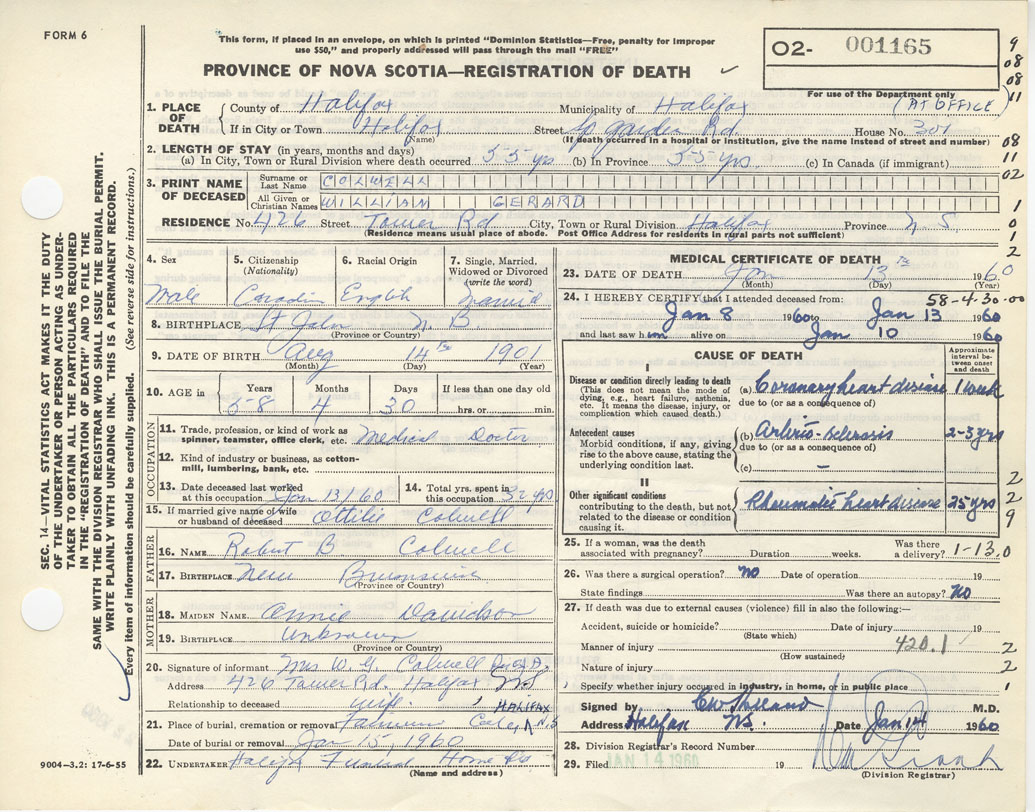 FORM 6
This form, if placed in an envelope, on which is printed "Dominion Statistics—Free, penalty for improper
use $50," and properly addressed will pass through the mail "FREE"
PROVINCE OF NOVA SCOTIA—REGISTRATION OF DEATH
02- 001165
For use of the Department only
9
08
08
11
1. PLACE OF DEATH
County of Halifax Municipality of Halifax (AT OFFICE)
If in City or Town Halifax Street Sp Garden Rd. House No. 301
(Name) (If death occurred in a hospital or Institution, give the name instead of street and number)
08
2. LENGTH OF STAY (in years, months and days)
(a) In City, Town or Rural Division where death occurred 55 yrs (b) In Province 55 yrs (c) In Canada (if immigrant)
11
02
3. PRINT NAME OF DECEASED
Surname or Last Name COLWELL
All Given or Christian Names WILLIAM GERARD
1
RESIDENCE No. 426 Street Tower Rd City, Town or Rural Division Halifax Province N.S.
(Residence means usual place of abode. Post Office Address for residents in rural parts not sufficient)
0
1
2
4. Sex
Male
5. Citizenship
(Nationality)
6. Racial Origin
English
7. Single, Married,
Widowed or Divorced
(write the word)
Married
8. BIRTHPLACE St John N.B.
(Province or Country)
9. DATE OF BIRTH Aug 14th 1901
(Month) (Day) (Year)
10. AGE in
Years Months Days If less than one day old
58 4 30 hrs. or min.
OCCUPATION
11. Trade, profession, or kind of work as
spinner, teamster, office clerk, etc. Medical Doctor
12. Kind of industry or business, as cotton-
mill, lumbering, bank, etc.
13. Date deceased last worked
at this occupation Jan 13/60
14. Total yrs. spent in
this occupation 32 yrs
15. If married give name of wife
or husband of deceased Ottilie Colwell
FATHER
16. NAME Robert B Colwell
17. BIRTHPLACE New Brunswick
(Province or Country)
MOTHER
18. MAIDEN NAME Annie Davidson
19. BIRTHPLACE Unknown
(Province or Country)
20. Signature of informant Mrs W. G. Colwell
Address 426 Tower Rd. Halifax N.S.
Relationship to deceased wife
HALIFAX
21. Place of burial, cremation or removal N.S
Date of burial or removal Jan 15, 1960
22. UNDERTAKER Halifax Funeral Home
(Name and address)
MEDICAL CERTIFICATE OF DEATH
23. DATE OF DEATH Jan 13th 1960
(Month) (Day) (Year)
24. I HEREBY CERTIFY that I attended deceased from: 58-4-30-00
Jan 8 1960 Jan 13 1960
and last saw him alive on Jan 10 1960
CAUSE OF DEATH
Approximate
interval be-
tween onset
and death
I
Disease or condition directly leading to death
(This does not mean the mode of
dying, e.g., heart failure, asthenia,
etc. It means the disease, injury, or
complication which caused death.)
(a) Coronary heart disease 1 week
due to (or as a consequence of)
Antecedent causes
Morbid conditions, if any, giving
rise to the above cause, stating the
underlying condition last.
(b) Arterio-sclerosis 2-3 yrs
due to (or as a consequence of)
(c) —
II
Other significant conditions
contributing to the death, but not
related to the disease or condition
causing it.
Rheumatic heart disease 25 yrs
2
2
9
25. If a woman, was the death
associated with pregnancy? Duration weeks. Was there
a delivery? 1-13.0
26. Was there a surgical operation? no Date of operation 19
State findings Was there an autopsy? No
27. If death was due to external causes (violence) fill in also the following:—
Accident, suicide or homicide? Date of injury 19
(State which)
Manner of injury 420.1 2
(How sustained)
Nature of injury 2
Specify whether injury occurred in industry, in home, or in public place 1
Signed by M.D.
Address Halifax NS. Date Jan 14 1960
28. Division Registrar's Record Number
29. Filed JAN 14 1960 19
(Division Registrar)
SEC. 14—VITAL STATISTICS ACT MAKES IT THE DUTY
OF THE UNDERTAKER OR PERSON ACTING AS UNDER-
TAKER TO OBTAIN ALL THE PARTICULARS REQUIRED
IN THE "REGISTRATION OF DEATH" AND TO FILE THE
SAME WITH THE DIVISION REGISTRAR WHO SHALL ISSUE THE BURIAL PERMIT.
WRITE PLAINLY WITH UNFADING INK. THIS IS A PERMANENT RECORD.
Every item of information should be carefully supplied. (See reverse side for instructions.)
9004-3.2: 17-6-55